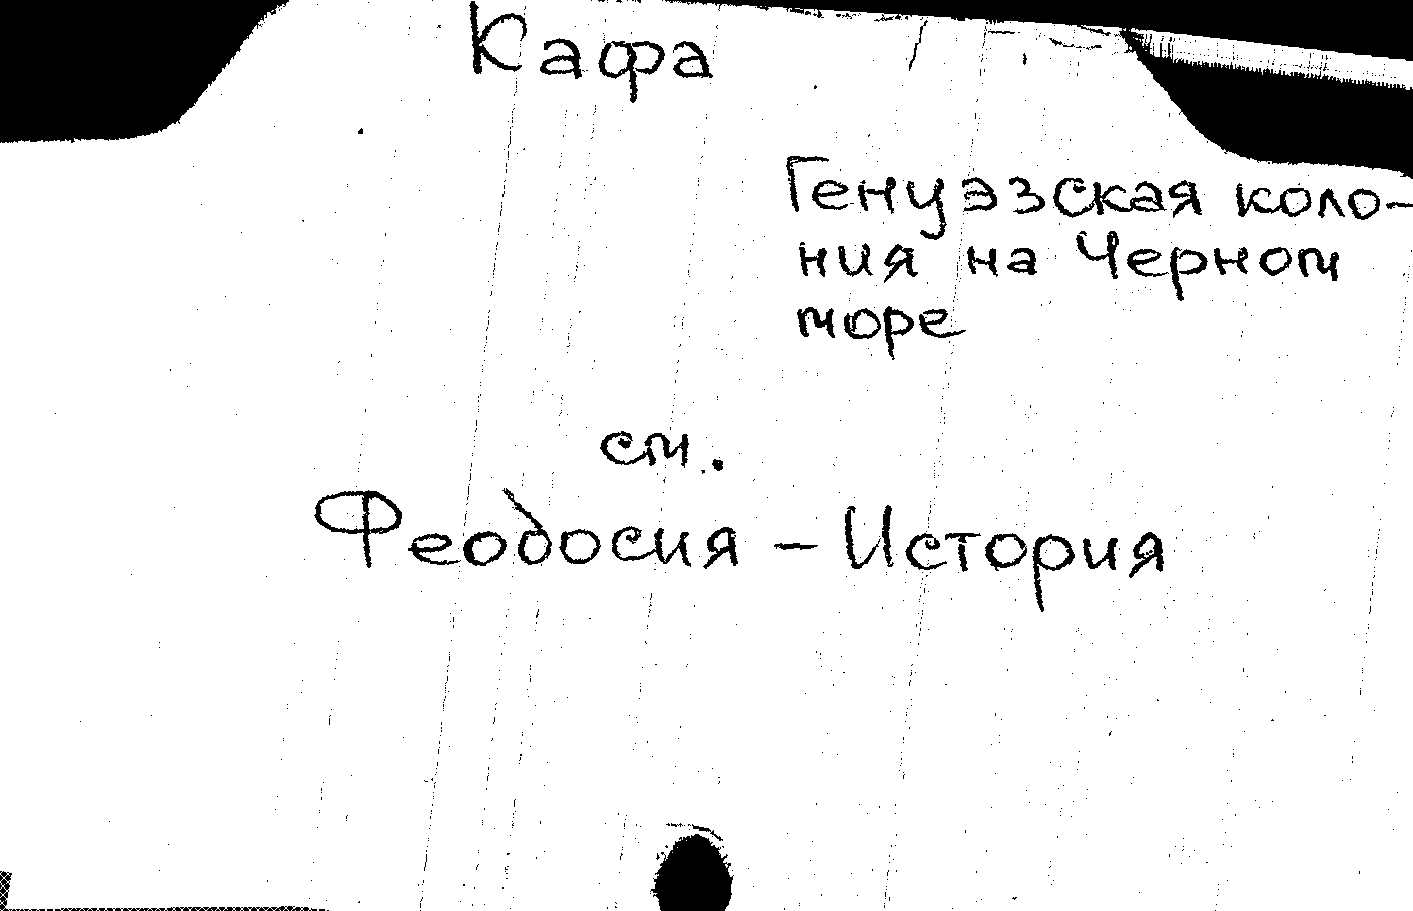 Кафа
Генуэзская коло-
ния на Черном
море
см.
Феодосия - История